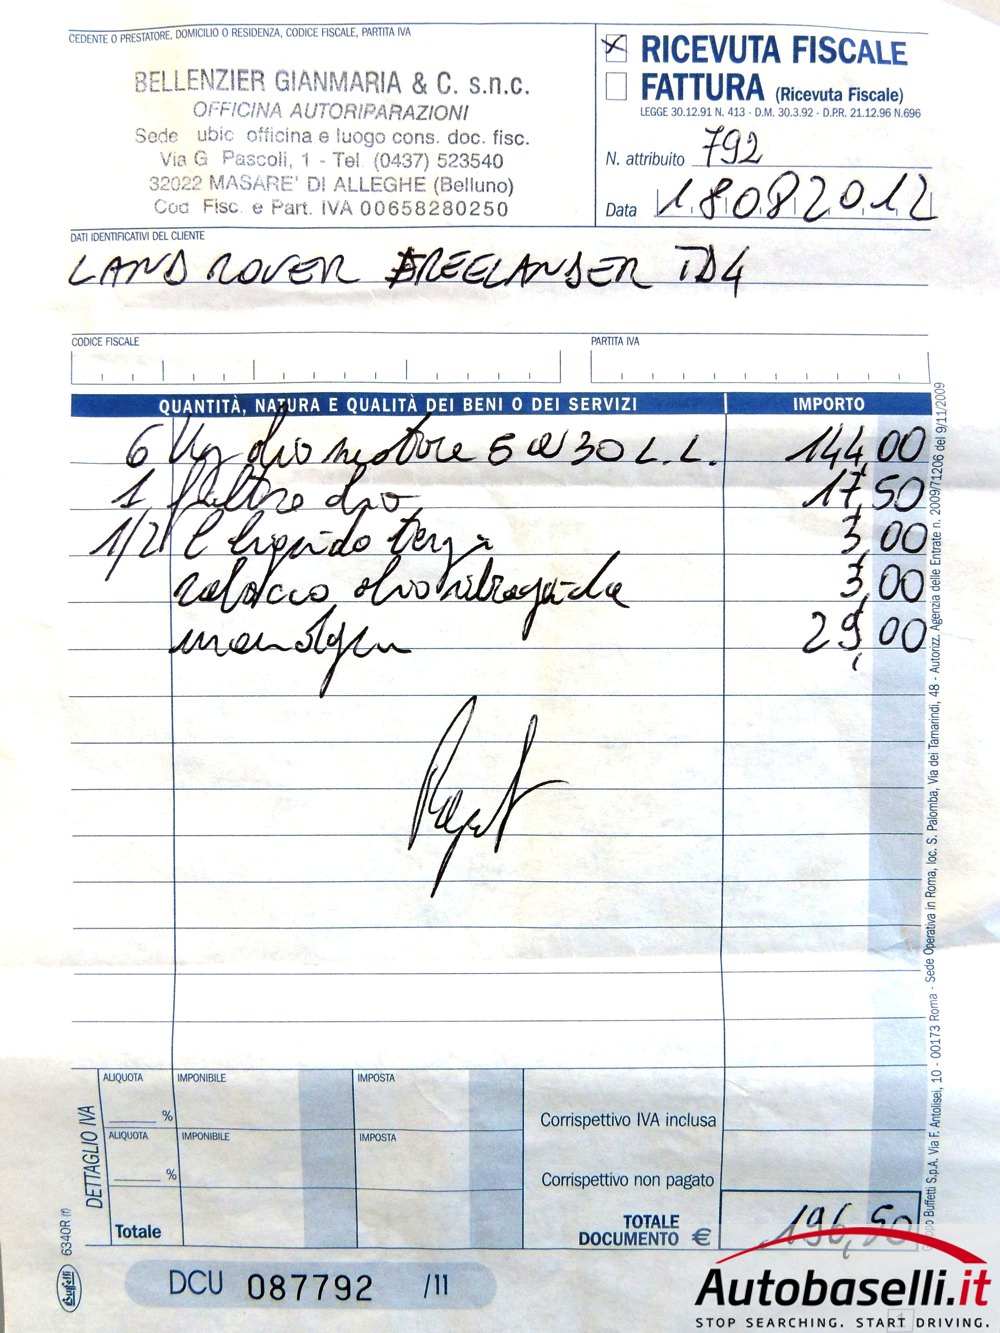 CEDENTE O PRESTATORE, DOMICILIO O RESIDENZA, CODICE FISCALE, PARTITA IVA
BELLENZIER GIANMARIA & C. s.n.c.
OFFICINA AUTORIPARAZIONI
Sede ubic officina e luogo cons. doc. fisc.
Via G Pascoli, 1 - Tel. (0437) 523540
32022 MASARE' DI ALLEGHE (Belluno)
Cod Fisc. e Part. IVA 00658280250
X RICEVUTA FISCALE
FATTURA (Ricevuta Fiscale)
LEGGE 30.12.91 N. 413 - D.M. 30.3.92 - D.P.R. 21.12.96 N.696
N. attribuito 792
Data 18082012
DATI IDENTIFICATIVI DEL CLIENTE
LAND ROVER FREELANDER TD4
CODICE FISCALE
PARTITA IVA
QUANTITÀ, NATURA E QUALITÀ DEI BENI O DEI SERVIZI IMPORTO
6 Kg olio motore 5W30 L.L. 144,00
1 filtro olio 17,50
1/2 l liquido 3,00
rabocco olio idroguida 3,00
29,00
ALIQUOTA IMPONIBILE IMPOSTA
%
Corrispettivo IVA inclusa
ALIQUOTA IMPONIBILE IMPOSTA
%
Corrispettivo non pagato
DETTAGLIO IVA
Totale
TOTALE DOCUMENTO € 196,50
6340R (f)
Buffetti
DCU 087792 /11
Gruppo Buffetti S.p.A. Via F. Antolisei, 10 - 00173 Roma - Sede Operativa in Roma, loc. S. Palomba, Via dei Tamarindi, 48 - Autorizz. Agenzia delle Entrate n. 2009/71206 del 9/11/2009
Autobaselli.it
STOP SEARCHING. START DRIVING.